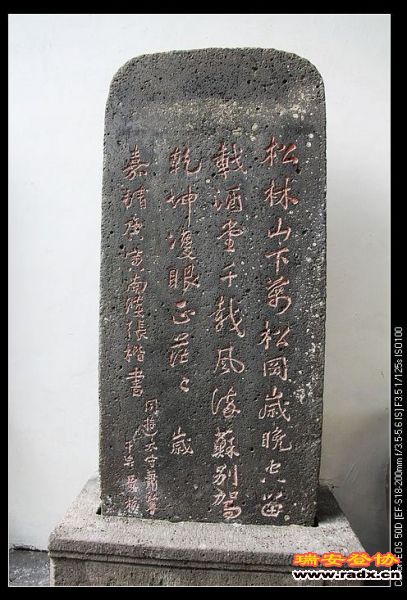 松林山下萬松岡歲晚空留
載酒堂千載風流蘇別駕
乾坤雙眼正茫々 歲
嘉靖 南 張楷書
同遊太守
瑞安登协
www.radx.cn
Canon EOS 50D [EF-S18-200mm f/3.5-5.6 IS] F3.5 1/125s ISO100